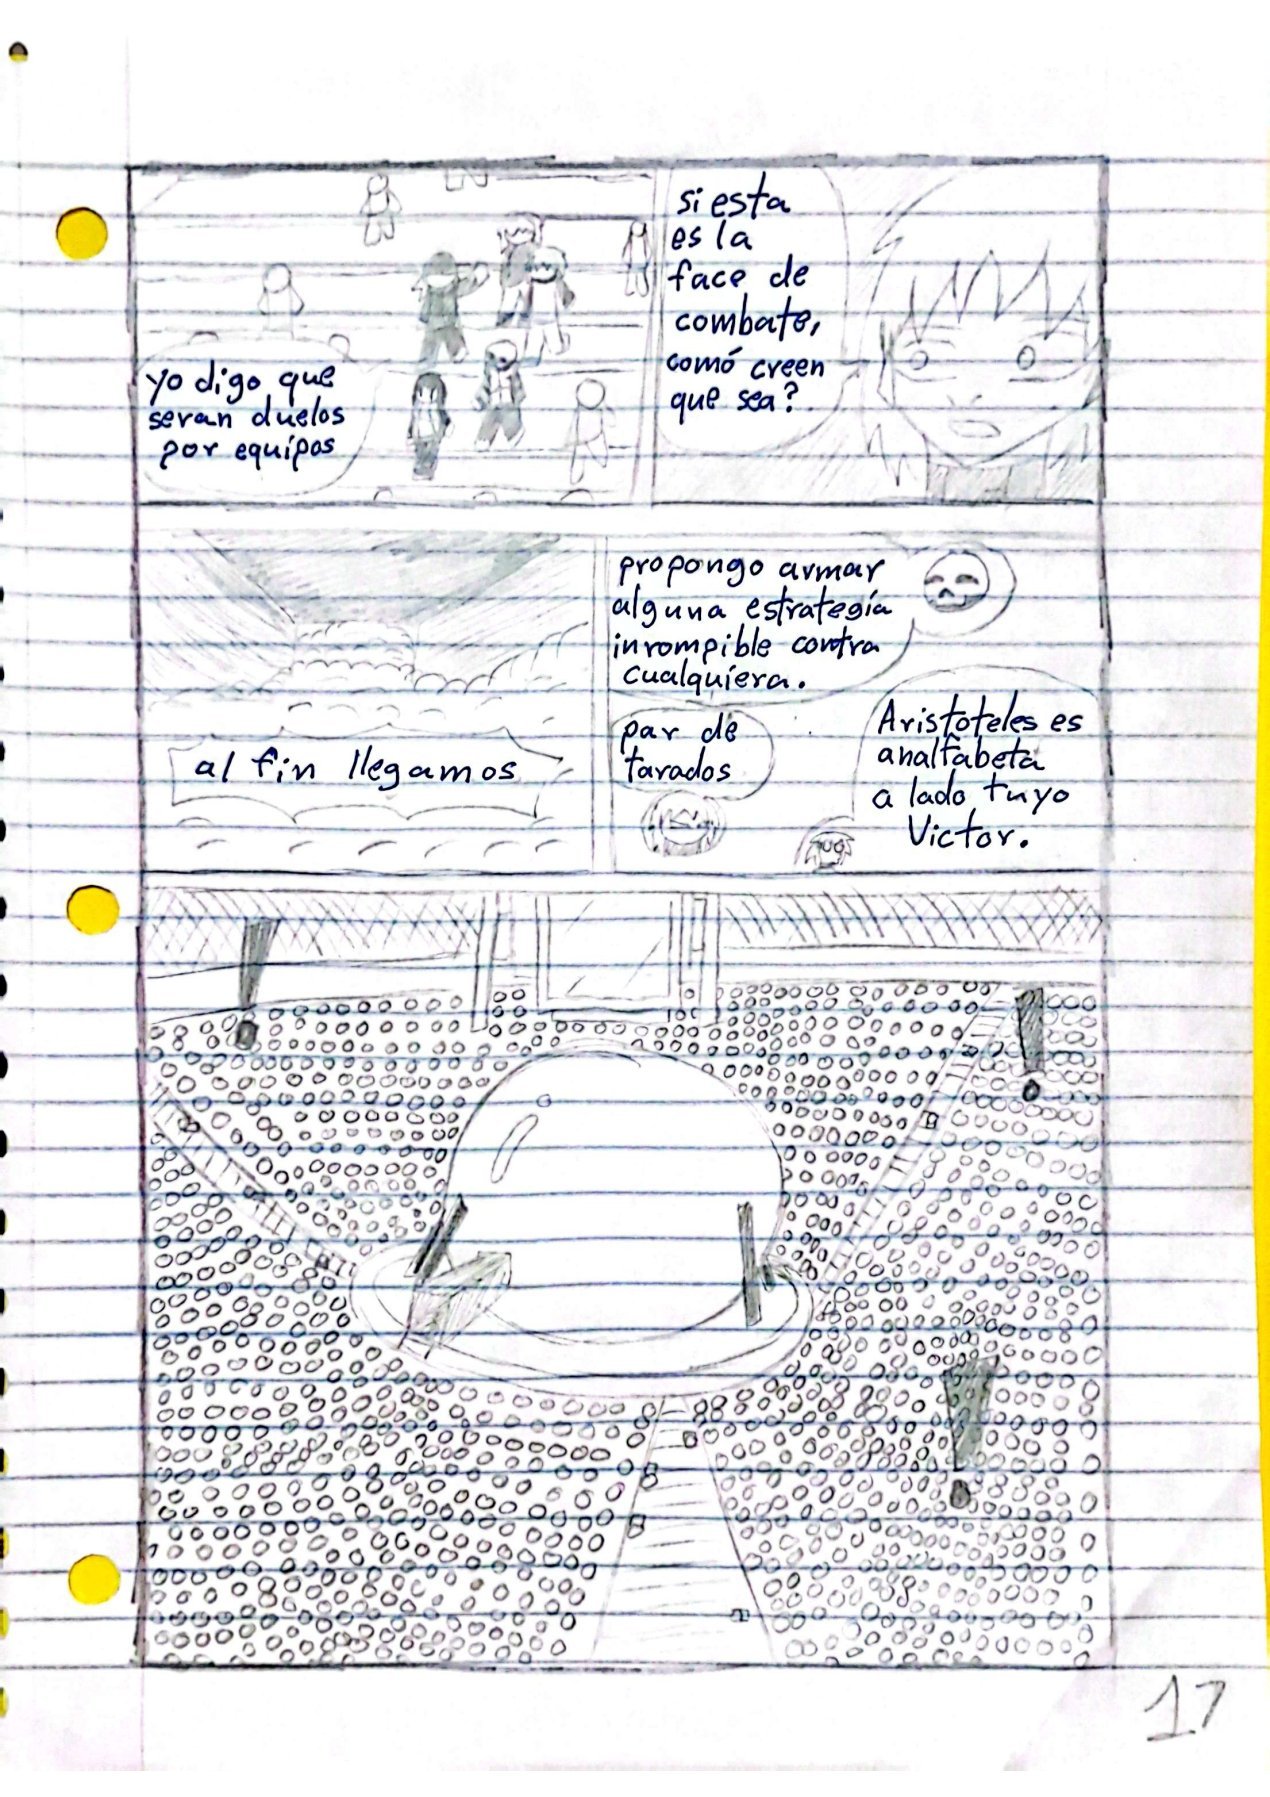 si esta
es la
face de
combate,
comó creen
que sea?
yo digo que
seran duelos
por equipos
propongo armar
alguna estrategía
inrompible contra
cualquiera.
Aristoteles es
analfabeta
a lado tuyo
Victor.
par de
tarados
al fin llegamos
17